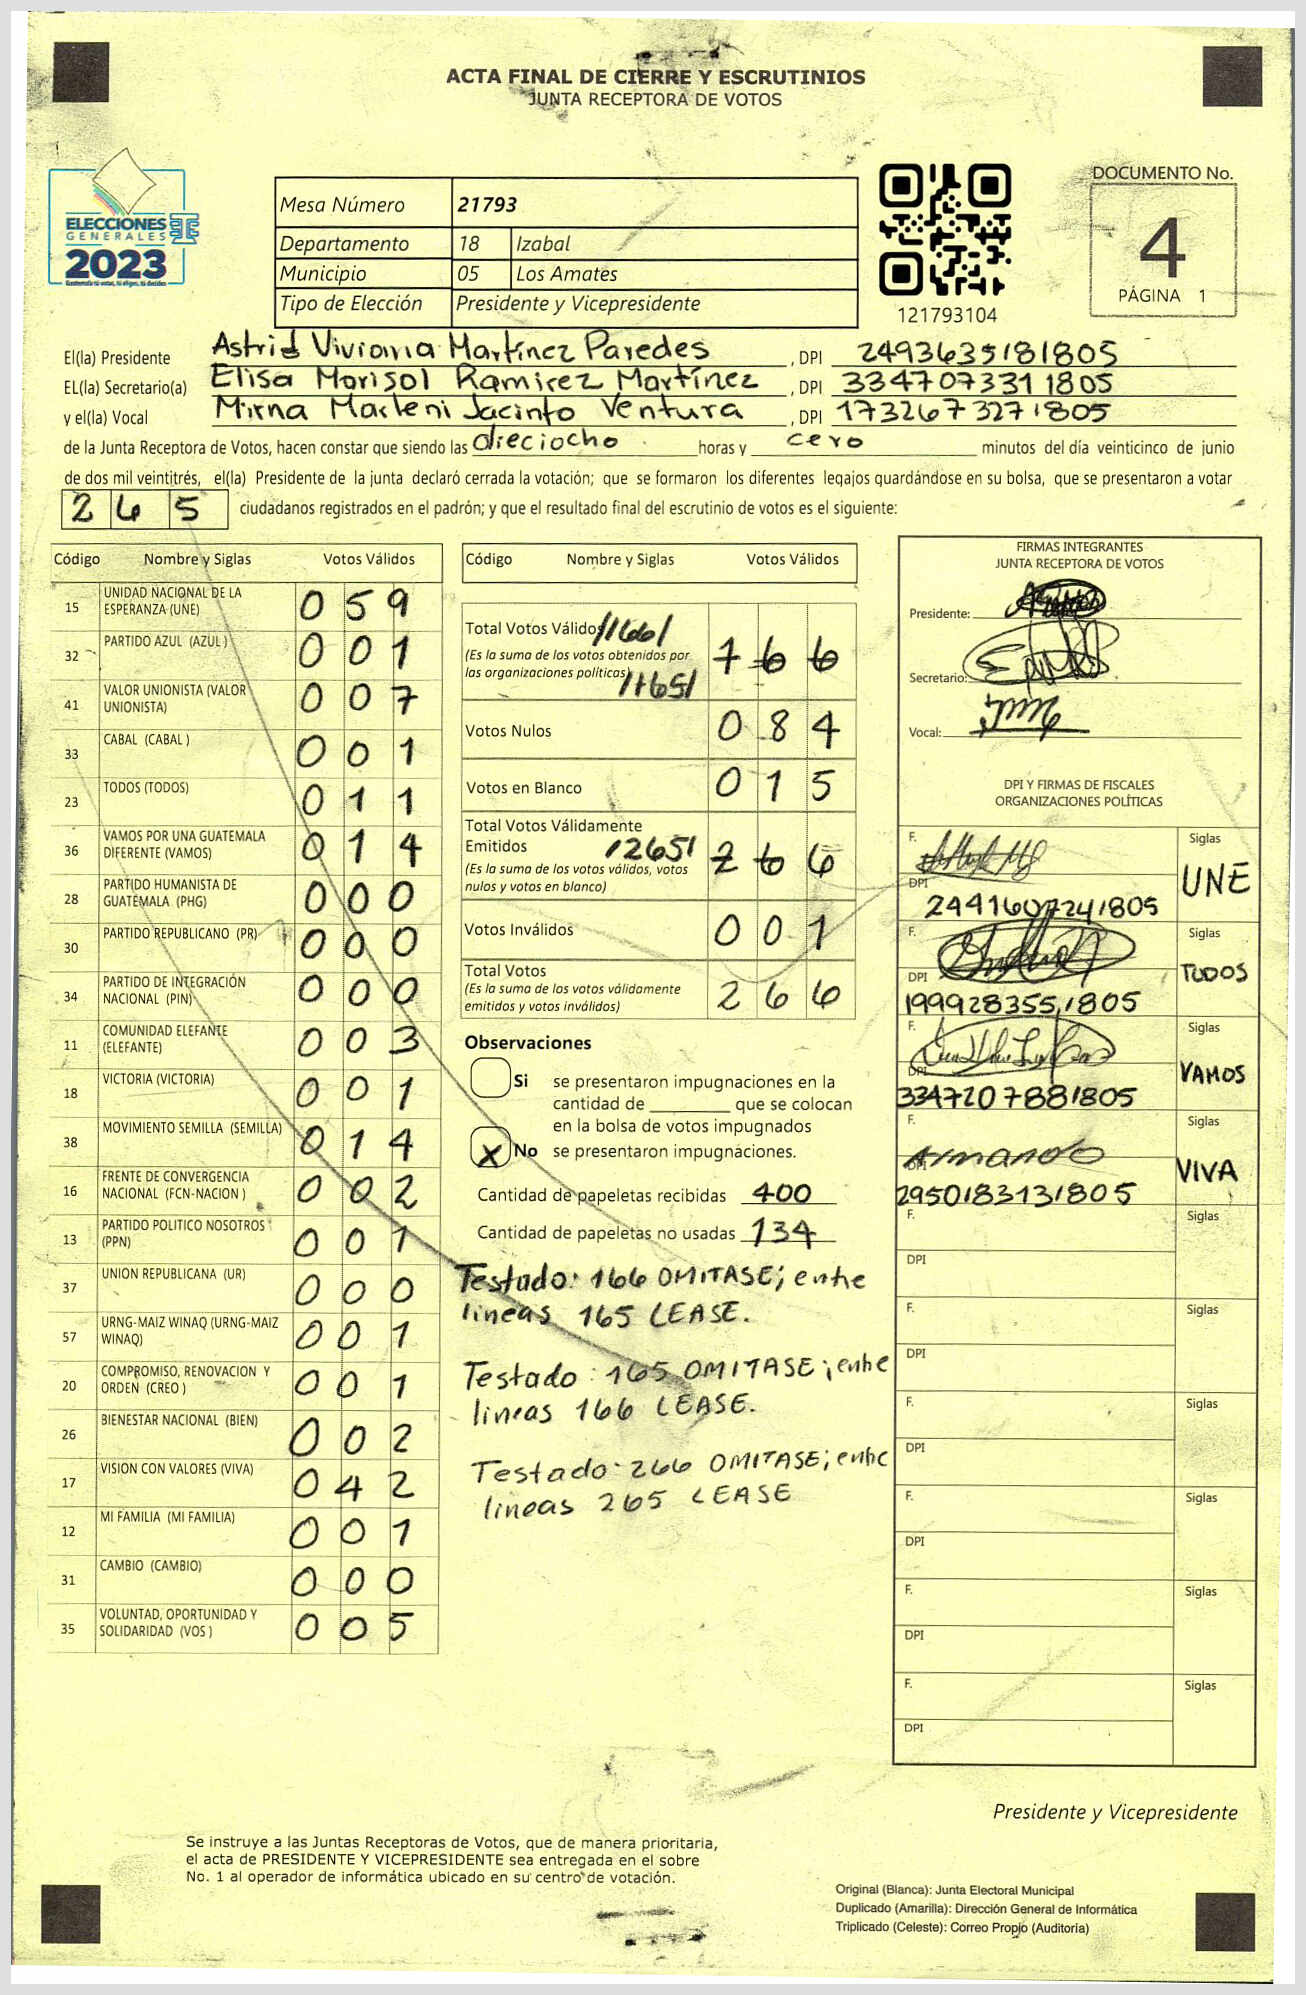 ACTA FINAL DE CIERRE Y ESCRUTINIOS
JUNTA RECEPTORA DE VOTOS
ELECCIONES
GENERALES
2023
Mesa Número 21793
Departamento 18 Izabal
Municipio 05 Los Amates
Tipo de Elección Presidente y Vicepresidente
121793104
DOCUMENTO No.
4
PÁGINA 1
El(la) Presidente Astrid Viviana Martínez Paredes, DPI 2493635181805
EL(la) Secretario(a) Elisa Marisol Ramirez Martínez, DPI 3347073311805
y el(la) Vocal Mirna Marleni Jacinto Ventura, DPI 1732673271805
de la Junta Receptora de Votos, hacen constar que siendo las dieciocho horas y cero minutos del día veinticinco de junio
de dos mil veintitrés, el(la) Presidente de la junta declaró cerrada la votación; que se formaron los diferentes legajos guardándose en su bolsa, que se presentaron a votar
265 ciudadanos registrados en el padrón; y que el resultado final del escrutinio de votos es el siguiente:
Código Nombre y Siglas Votos Válidos
15 UNIDAD NACIONAL DE LA ESPERANZA (UNE) 059
32 PARTIDO AZUL (AZUL) 001
41 VALOR UNIONISTA (VALOR UNIONISTA) 007
33 CABAL (CABAL) 001
23 TODOS (TODOS) 011
36 VAMOS POR UNA GUATEMALA DIFERENTE (VAMOS) 014
28 PARTIDO HUMANISTA DE GUATEMALA (PHG) 000
30 PARTIDO REPUBLICANO (PR) 000
34 PARTIDO DE INTEGRACIÓN NACIONAL (PIN) 000
11 COMUNIDAD ELEFANTE (ELEFANTE) 003
18 VICTORIA (VICTORIA) 001
38 MOVIMIENTO SEMILLA (SEMILLA) 014
16 FRENTE DE CONVERGENCIA NACIONAL (FCN-NACION) 002
13 PARTIDO POLITICO NOSOTROS (PPN) 001
37 UNION REPUBLICANA (UR) 000
57 URNG-MAIZ WINAQ (URNG-MAIZ WINAQ) 001
20 COMPROMISO, RENOVACION Y ORDEN (CREO) 001
26 BIENESTAR NACIONAL (BIEN) 002
17 VISION CON VALORES (VIVA) 042
12 MI FAMILIA (MI FAMILIA) 001
31 CAMBIO (CAMBIO) 000
35 VOLUNTAD, OPORTUNIDAD Y SOLIDARIDAD (VOS) 005
Código Nombre y Siglas Votos Válidos
Total Votos Válidos /166/ 166
(Es la suma de los votos obtenidos por
las organizaciones políticas) /165/
Votos Nulos 084
Votos en Blanco 015
Total Votos Válidamente
Emitidos /265/ 266
(Es la suma de los votos válidos, votos
nulos y votos en blanco)
Votos Inválidos 001
Total Votos 266
(Es la suma de los votos válidamente
emitidos y votos inválidos)
Observaciones
Si se presentaron impugnaciones en la
cantidad de ________ que se colocan
en la bolsa de votos impugnados
X No se presentaron impugnaciones.
Cantidad de papeletas recibidas 400
Cantidad de papeletas no usadas 134
Testado: 166 OMITASE; entre
lineas 165 LEASE.
Testado: 165 OMITASE; entre
lineas 166 LEASE.
Testado: 266 OMITASE; entre
lineas 265 LEASE
FIRMAS INTEGRANTES
JUNTA RECEPTORA DE VOTOS
Presidente:
Secretario:
Vocal:
DPI Y FIRMAS DE FISCALES
ORGANIZACIONES POLÍTICAS
F. Siglas
DPI 2441607241805 UNE
F. Siglas
DPI 1999283551805 TODOS
F. Siglas
DPI 3347207881805 VAMOS
F. Armando Siglas
DPI 2950183131805 VIVA
F. Siglas
DPI
F. Siglas
DPI
F. Siglas
DPI
F. Siglas
DPI
F. Siglas
DPI
F. Siglas
DPI
Presidente y Vicepresidente
Se instruye a las Juntas Receptoras de Votos, que de manera prioritaria,
el acta de PRESIDENTE Y VICEPRESIDENTE sea entregada en el sobre
No. 1 al operador de informática ubicado en su centro de votación.
Original (Blanca): Junta Electoral Municipal
Duplicado (Amarilla): Dirección General de Informática
Triplicado (Celeste): Correo Propio (Auditoria)